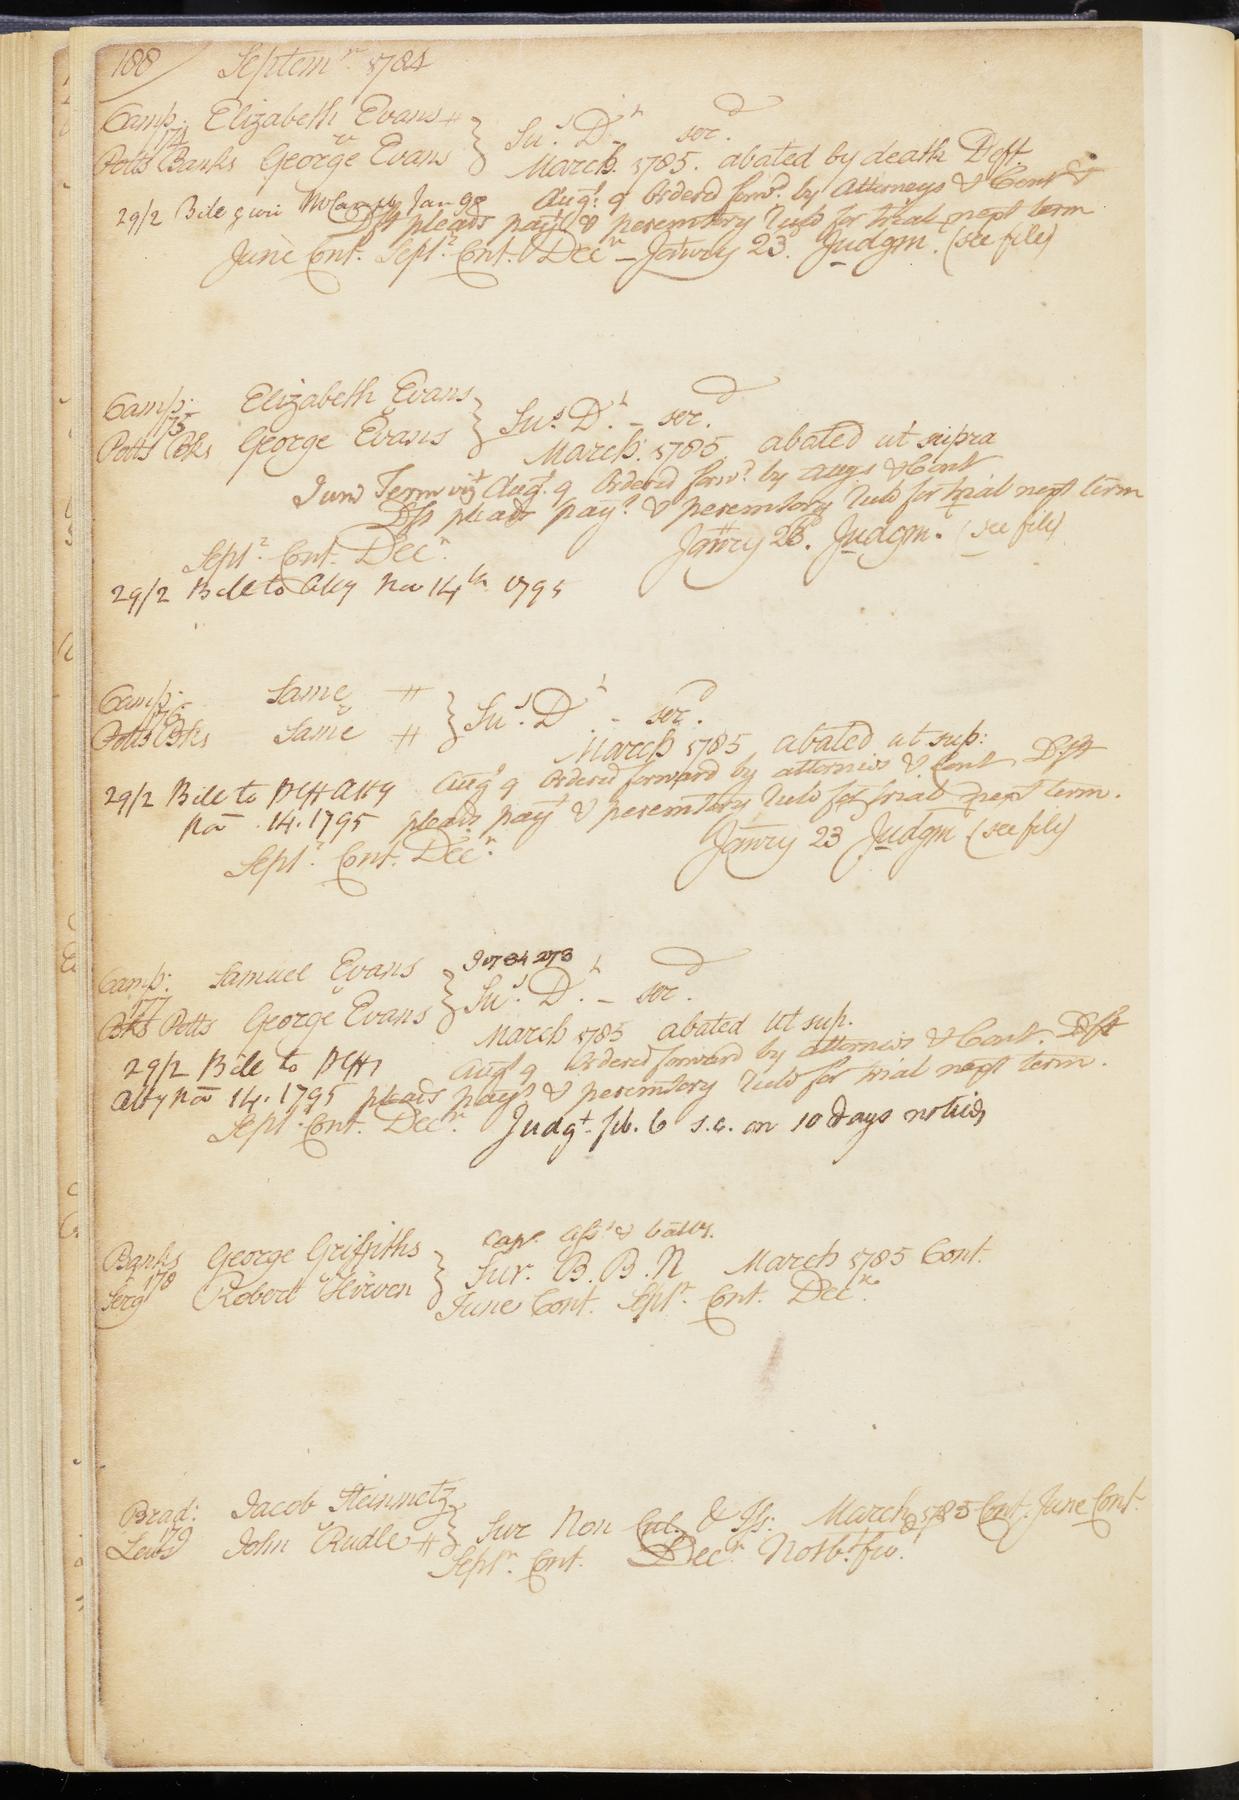 188 Septemr. 1784
Camp. Elizabeth Evans
174 v
Potts Banks George Evans } Sus. Dt. ser.d
March. 1785. abated by death Deft.
29/2 Bile givn Jan 98 Augt. 9 Ordered forwd. by Attorneys & Cont
Dft pleads payt. & peremtory Rule for trial next term
June Cont. Septr. Cont. Decr – Janry 23. Judgm. (see file)
Camp: Elizabeth Evans
175 v
Potts Bks George Evans } Sus. Dt. – ser.d
March. 1785. abated ut supra
June Term vizt Augt. 9 Ordered forwd. by attys & Cont
Dft pleads payt. & peremtory Rule for trial next term
Janry 23. Judgm. (see file)
Septr. Cont. Decr.
29/2 Bile to Atty No 14th 1795
Camp: Same #
176 v
Potts Bks Same # } Sus. Dt – ser.d
March 1785 abated ut sup:
29/2 Bile to Plff Atty Augt 9 Ordered forward by attornies & Cont Dft
No 14. 1795 pleads payt & peremtory Rule for trial next term.
Janry 23 Judgm (see file)
Septr. Cont. Decr.
Camp: Samuel Evans
177 v
Bks Potts George Evans } Sus. Dt. – ser.d
March 1785 abated ut sup.
29/2 Bile to Plffs Augt 9 Ordered forward by attornies & Cont. Dft
Atty No 14. 1795 pleads payt & peremtory Rule for trial next term.
Septr. Cont. Decr. Judgt. feb. 6 s.c. on 10 days notice
Cape. Asst & Batty.
Banks George Griffiths
178 v
Serg Robert } Sur. B. B. N March 1785 Cont.
June Cont. Septr. Cont. Decr.
Brad: Jacob Steinmetz
179 v
Lewis John Rudle # } Sur Non Cul. & Iss: March 1785 Cont. June Cont.
Septr. Cont. Decr.